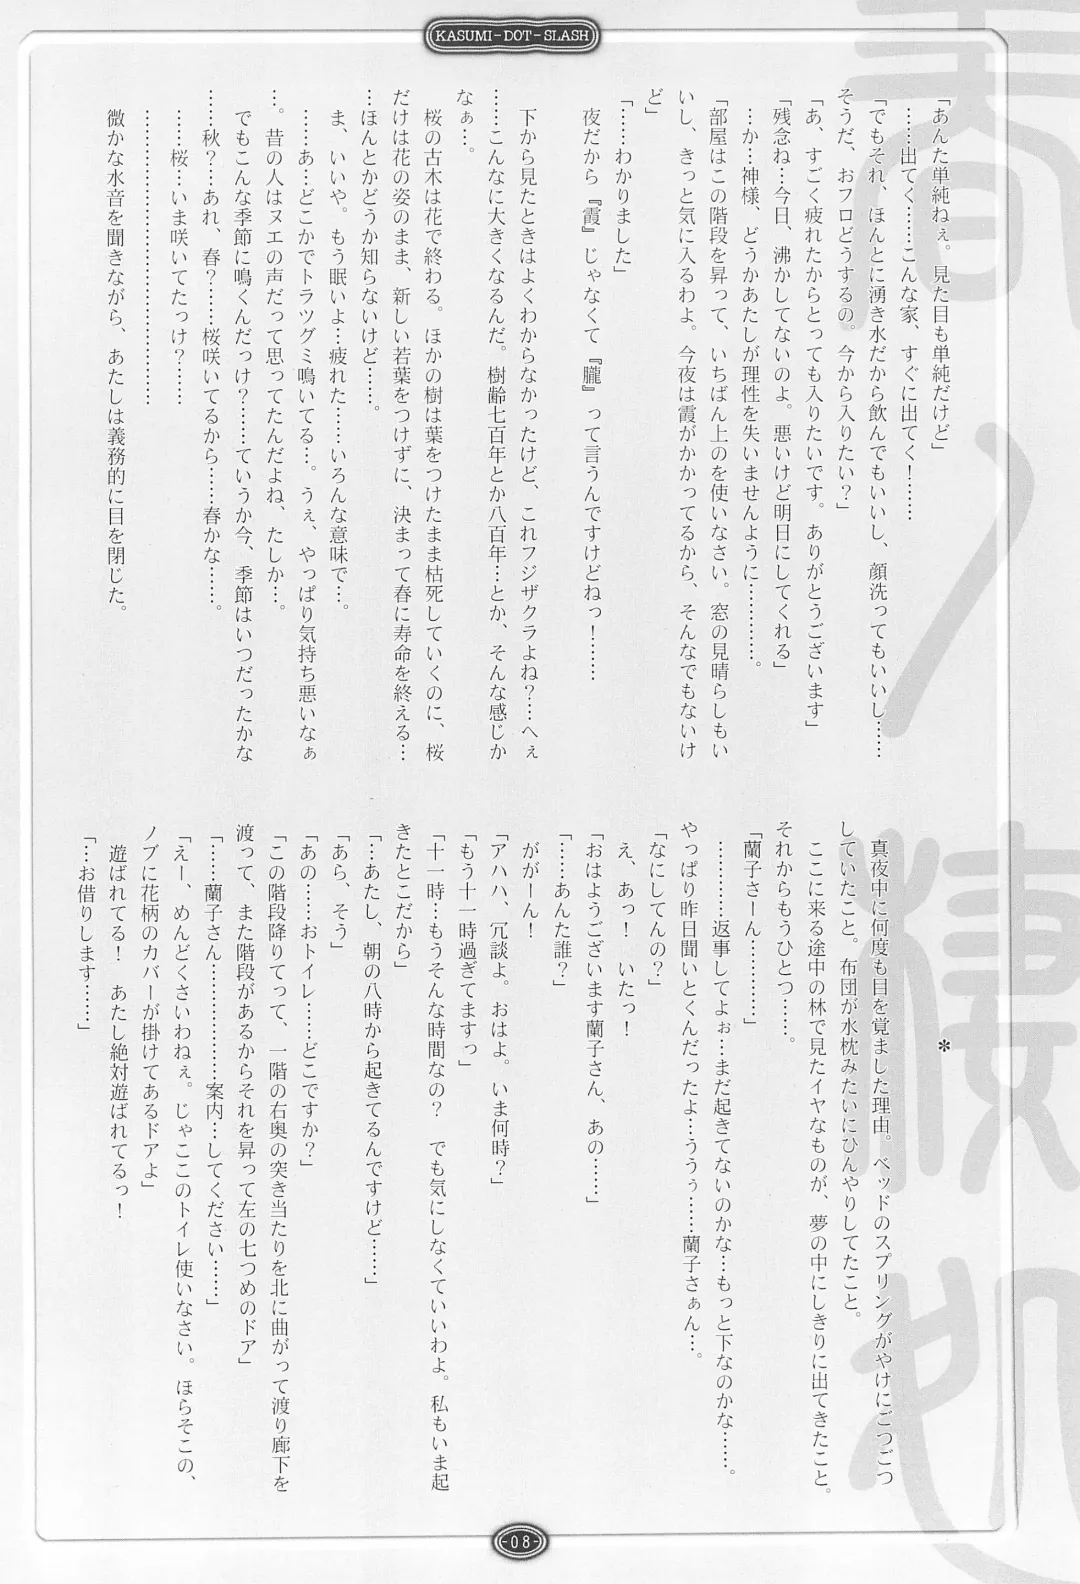 KASUMI-DOT-SLASH
「あんた単純ねぇ。見た目も単純だけど」
……出てく………こんな家、すぐに出てく！………
「でもそれ、ほんとに湧き水だから飲んでもいいし、顔洗ってもいいし……
そうだ、おフロどうするの。今から入りたい？」
「あ、すごく疲れたからとっても入りたいです。ありがとうございます」
「残念ね…今日、沸かしてないのよ。悪いけど明日にしてくれる」
…か…神様、どうかあたしが理性を失いませんように…………。
「部屋はこの階段を昇って、いちばん上のを使いなさい。窓の見晴らしもい
いし、きっと気に入るわよ。今夜は霞がかかってるから、そんなでもないけ
ど」
「……わかりました」
夜だから『霞』じゃなくて『朧』って言うんですけどねっ！………
下から見たときはよくわからなかったけど、これフジザクラよね？…へぇ
……こんなに大きくなるんだ。樹齢七百年とか八百年…とか、そんな感じか
なぁ…。
桜の古木は花で終わる。ほかの樹は葉をつけたまま枯死していくのに、桜
だけは花の姿のまま、新しい若葉をつけずに、決まって春に寿命を終える…
…ほんとかどうか知らないけど……。
ま、いいや。もう眠いよ…疲れた……いろんな意味で…。
……あ…どこかでトラツグミ鳴いてる…。うぇ、やっぱり気持ち悪いなぁ
…。昔の人はヌエの声だって思ってたんだよね、たしか…。
でもこんな季節に鳴くんだっけ？……ていうか今、季節はいつだったかな
……秋？…あれ、春？……桜咲いてるから……春かな……。
……桜…いま咲いてたっけ？……
………………………………………
微かな水音を聞きながら、あたしは義務的に目を閉じた。
＊
真夜中に何度も目を覚ました理由。ベッドのスプリングがやけにごつごつ
していたこと。布団が水枕みたいにひんやりしてたこと。
ここに来る途中の林で見たイヤなものが、夢の中にしきりに出てきたこと。
それからもうひとつ……。
「蘭子さーん…………」
…………返事してよぉ…まだ起きてないのかな…もっと下なのかな……。
やっぱり昨日聞いとくんだったよ…ううぅ……蘭子さぁん…。
「なにしてんの？」
え、あっ！　いたっ！
「おはようございます蘭子さん、あの……」
「……あんた誰？」
ががーん！
「アハハ、冗談よ。おはよ。いま何時？」
「もう十一時過ぎてますっ」
「十一時…もうそんな時間なの？　でも気にしなくていいわよ。私もいま起
きたとこだから」
「…あたし、朝の八時から起きてるんですけど……」
「あら、そう」
「あの……おトイレ……どこですか？」
「この階段降りてって、一階の右奥の突き当たりを北に曲がって渡り廊下を
渡って、また階段があるからそれを昇って左の七つめのドア」
「……蘭子さん………………案内…してください……」
「えー、めんどくさいわねぇ。じゃここのトイレ使いなさい。ほらそこの、
ノブに花柄のカバーが掛けてあるドアよ」
遊ばれてる！　あたし絶対遊ばれてるっ！
「…お借りします……」
-08-